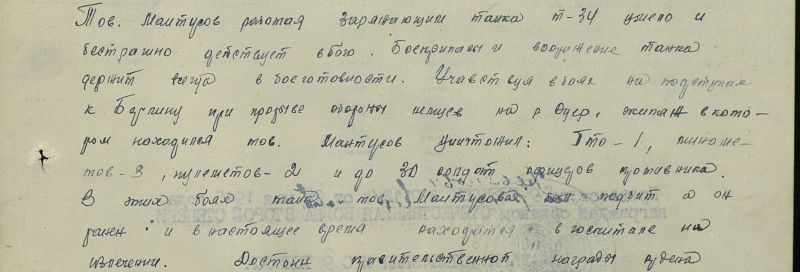 Тов. Мантусов работая заряжающим танка Т-34 умело и
бесстрашно действует в бою. Боеприпасы и вооружение танка
держит всегда в боеготовности. Учавствуя в боях на подступах
к Берлину при прорыве обороны немцев на р. Одер, экипаж в кото-
ром находился тов. Мантусов уничтожил: ПТО-1, миноме-
тов-3, пулеметов-2 и до 30 солдат офицеров противника.
В этих боях танк тов. Мантусова был подбит а он
ранен и в настоящее время находится в госпитале на
излечении. Достоин правительственной награды ордена